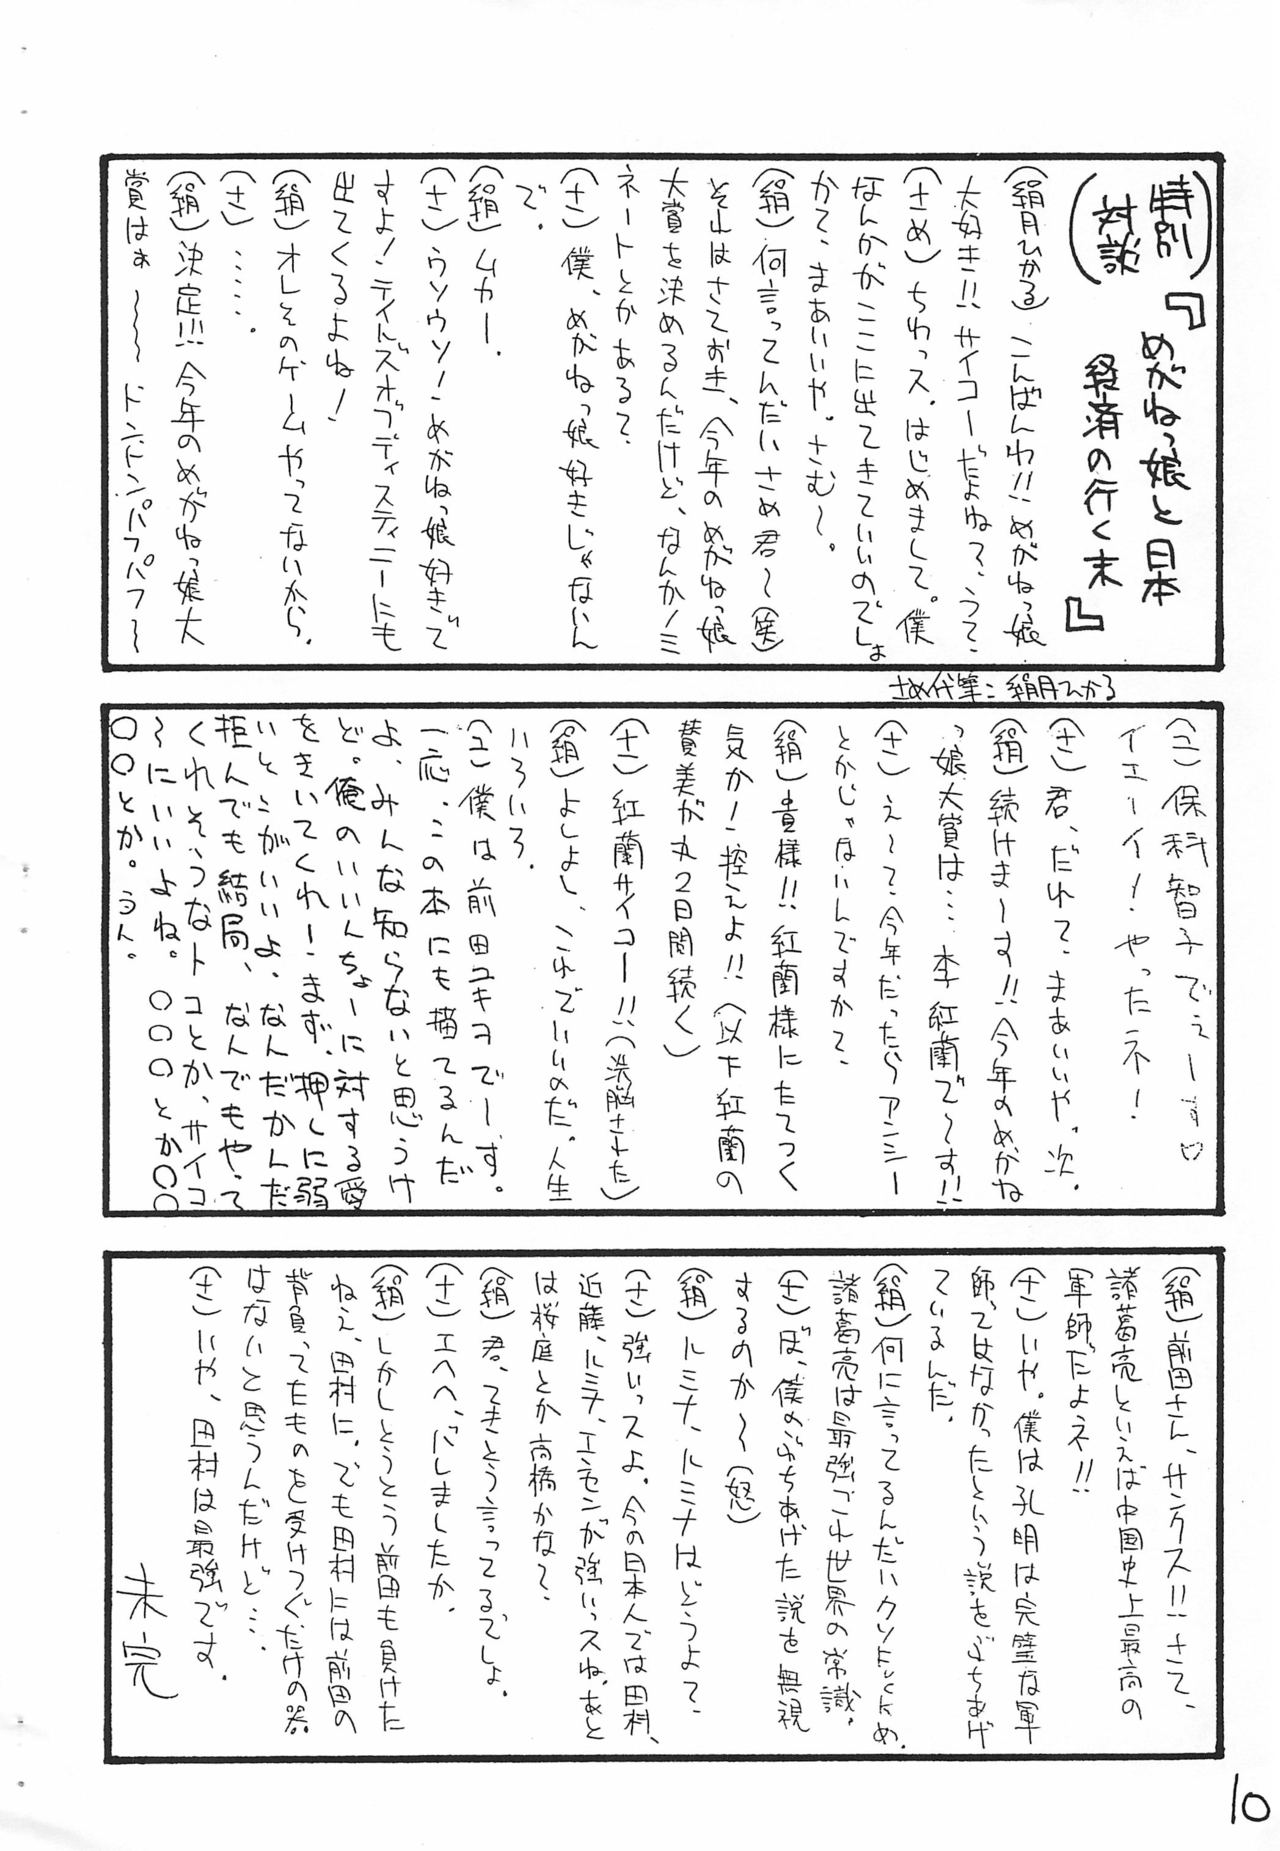 特別
対談
『めがねっ娘と日本
経済の行く末』
(絹月ひかる)こんばんわ!!めがねっ娘
大好き!!サイコーだよね?、うて?、
(さめ)ちわっス。はじめまして。僕
なんかがここに出てきていいのでしょ
かて、まあいいや。さむ〜。
(絹)何言ってんだいさめ君〜(笑)
それはさておき、今年のめがねっ娘
大賞を決めるんだけど、なんかノミ
ネートとかある?
(さ)僕、めがねっ娘好きじゃないん
で.
(絹)ムカー.
(さ)ウソウソ!めがねっ娘好きで
すよ!テイルズオブディスティニーにも
出てくるよね!
(絹)オレそのゲームやってないから.
(さ)……。
(絹)決定!!!今年のめがねっ娘大
賞はぁ〜〜〜ドンドンパフパフ〜
さめ代筆:絹月ひかる
(ユ)保科智子でぇーす♡
イエーイ!やったネ!
(さ)君、だれ?まあいいや。次.
(絹)続けま〜す!!今年のめがね
っ娘大賞は…李紅蘭で〜す!!
(さ)え〜?今年だったらアンシー
とかじゃないんですか?、
(絹)貴様!!紅蘭様にたてつく
気か!控えよ!!(以下紅蘭の
賛美が丸2日間続く)
(さ)紅蘭サイコー!!(洗脳された)
(絹)よしよし、これでいいのだ。人生
いろいろ.
(ユ)僕は前田ユキヲでーす。
一応、この本にも描てるんだ
よ、みんな知らないと思うけ
ど。俺のいいんちょーに対する愛
をきいてくれー!まず、押しに弱
いとこがいいよ、なんだかんだ
拒んでも結局、なんでもやって
くれそうなトコとか、サイコ
〜にいいよね。〇〇〇とか〇〇
〇〇とか。うん。
(絹)前田さん、サンクス!!さて、
諸葛亮といえば中国史上最高の
軍師だよネ!!
(さ)いや。僕は孔明は完璧な軍
師ってはなかったという説をぶちあげ
ているんだ.
(絹)何に言ってるんだいクソFuckめ.
諸葛亮は最強これ世界の常識.
(さ)ぼ、僕のぶちあげた説を無視
するのか〜(怒)
(絹)ルミナ、ルミナはどうよ?、
(さ)強いっスよ。今の日本人では田村、
近藤、ルミナ、エンセンが強いっスね。あと
は桜庭とか高橋かな?、
(絹)君、てきとう言ってるでしょ.
(さ)エヘヘ、バレましたか.
(絹)しかしとうとう前田も負けた
ねえ、田村に。でも田村には前田の
背負ってたものを受けつぐだけの器
はないと思うんだけど….
(さ)いや、田村は最強です.
未完
10